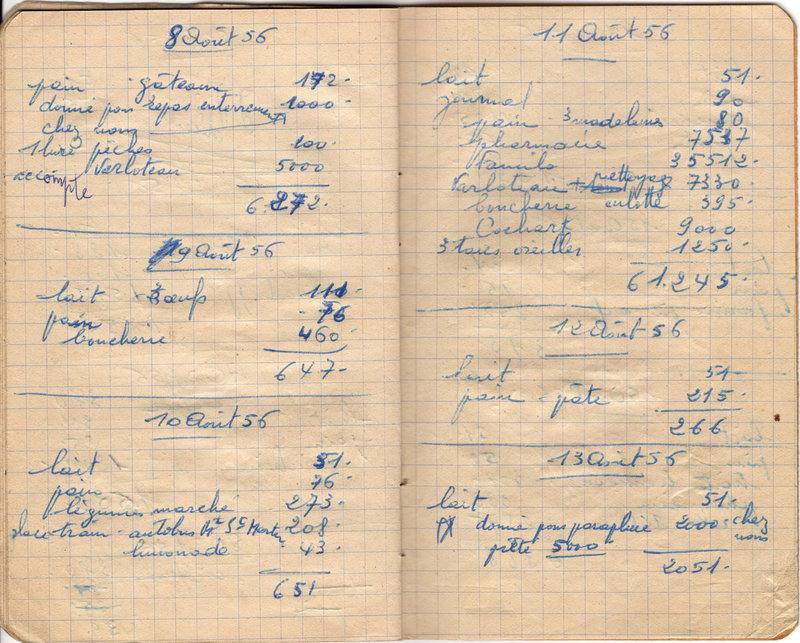 8 Août 56
pain - gâteaux 172.
donné pour repas enterrement 1000.
chez nous
1 livre pêches 100.
accompte Varloteau 5000
6.272.
9 Août 56
lait - 3 oeufs 111.
pain - 76
boucherie 460
647.
10 Août 56
lait 51.
pain 76.
légumes marché 273.
place train - autobus 208.
limonade 43.
651
11 Août 56
lait 51.
journal 90
pain - 3 madeleines 80
pharmacie 7537
Familo 35512.
Varloteau + nettoyage 7330.
boucherie culotte 395.
Cochart 9000
3 taies oreilles 1250.
61.245.
12 Août 56
lait 51
pain - pâte 215.
266
13 Août 56
lait 51.
donné pour parapluie 2000 = chez nous
prête 5000
2051.